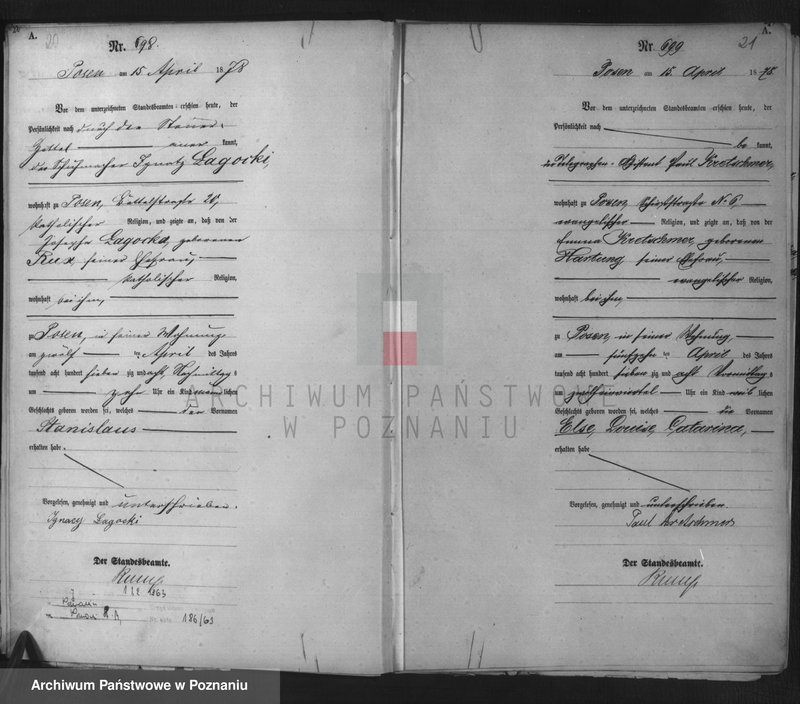 A.
20
Nr. 698.
Posen am 15 April 1878
Vor dem unterzeichneten Standesbeamten erschien heute, der
Persönlichkeit nach durch den Steuer-
Zettel — aner kannt,
der Schuhmacher Ignatz Łagocki,
wohnhaft zu Posen, 26,
katholischer Religion, und zeigte an, daß von der
Josepha Łagocka, geborenen
Rux, seiner Ehefrau,
katholischer Religion,
wohnhaft bei ihm,
zu Posen, in seiner Wohnung
am zwölf ten April des Jahres
tausend acht hundert sieben zig und acht, Nachmittags
um zehn Uhr ein Kind männ lichen
Geschlechts geboren worden sei, welches den Vornamen
Stanislaus
erhalten habe.
Vorgelesen, genehmigt und unterschrieben.
Ignacy Łagocki
Der Standesbeamte.
1963
186/63
A.
21
Nr. 699
Posen am 15. April 1878.
Vor dem unterzeichneten Standesbeamten erschien heute, der
Persönlichkeit nach
be kannt,
der Telegraphen-Assistent Paul Kretschmer,
wohnhaft zu Posen, No 6
evangelischer Religion, und zeigte an, daß von der
Emma Kretschmer, geborenen
Hartung seiner Ehefrau,
evangelischer Religion,
wohnhaft bei ihm,
zu Posen, in seiner Wohnung,
am fünfzehn ten April des Jahres
tausend acht hundert sieben zig und acht Vormittags
um Uhr ein Kind weib lichen
Geschlechts geboren worden sei, welches die Vornamen
Else, Louise, Catarina,
erhalten habe
Vorgelesen, genehmigt und unterschrieben
Paul Kretschmer
Der Standesbeamte.
ARCHIWUM PAŃSTWOWE
W POZNANIU
Archiwum Państwowe w Poznaniu